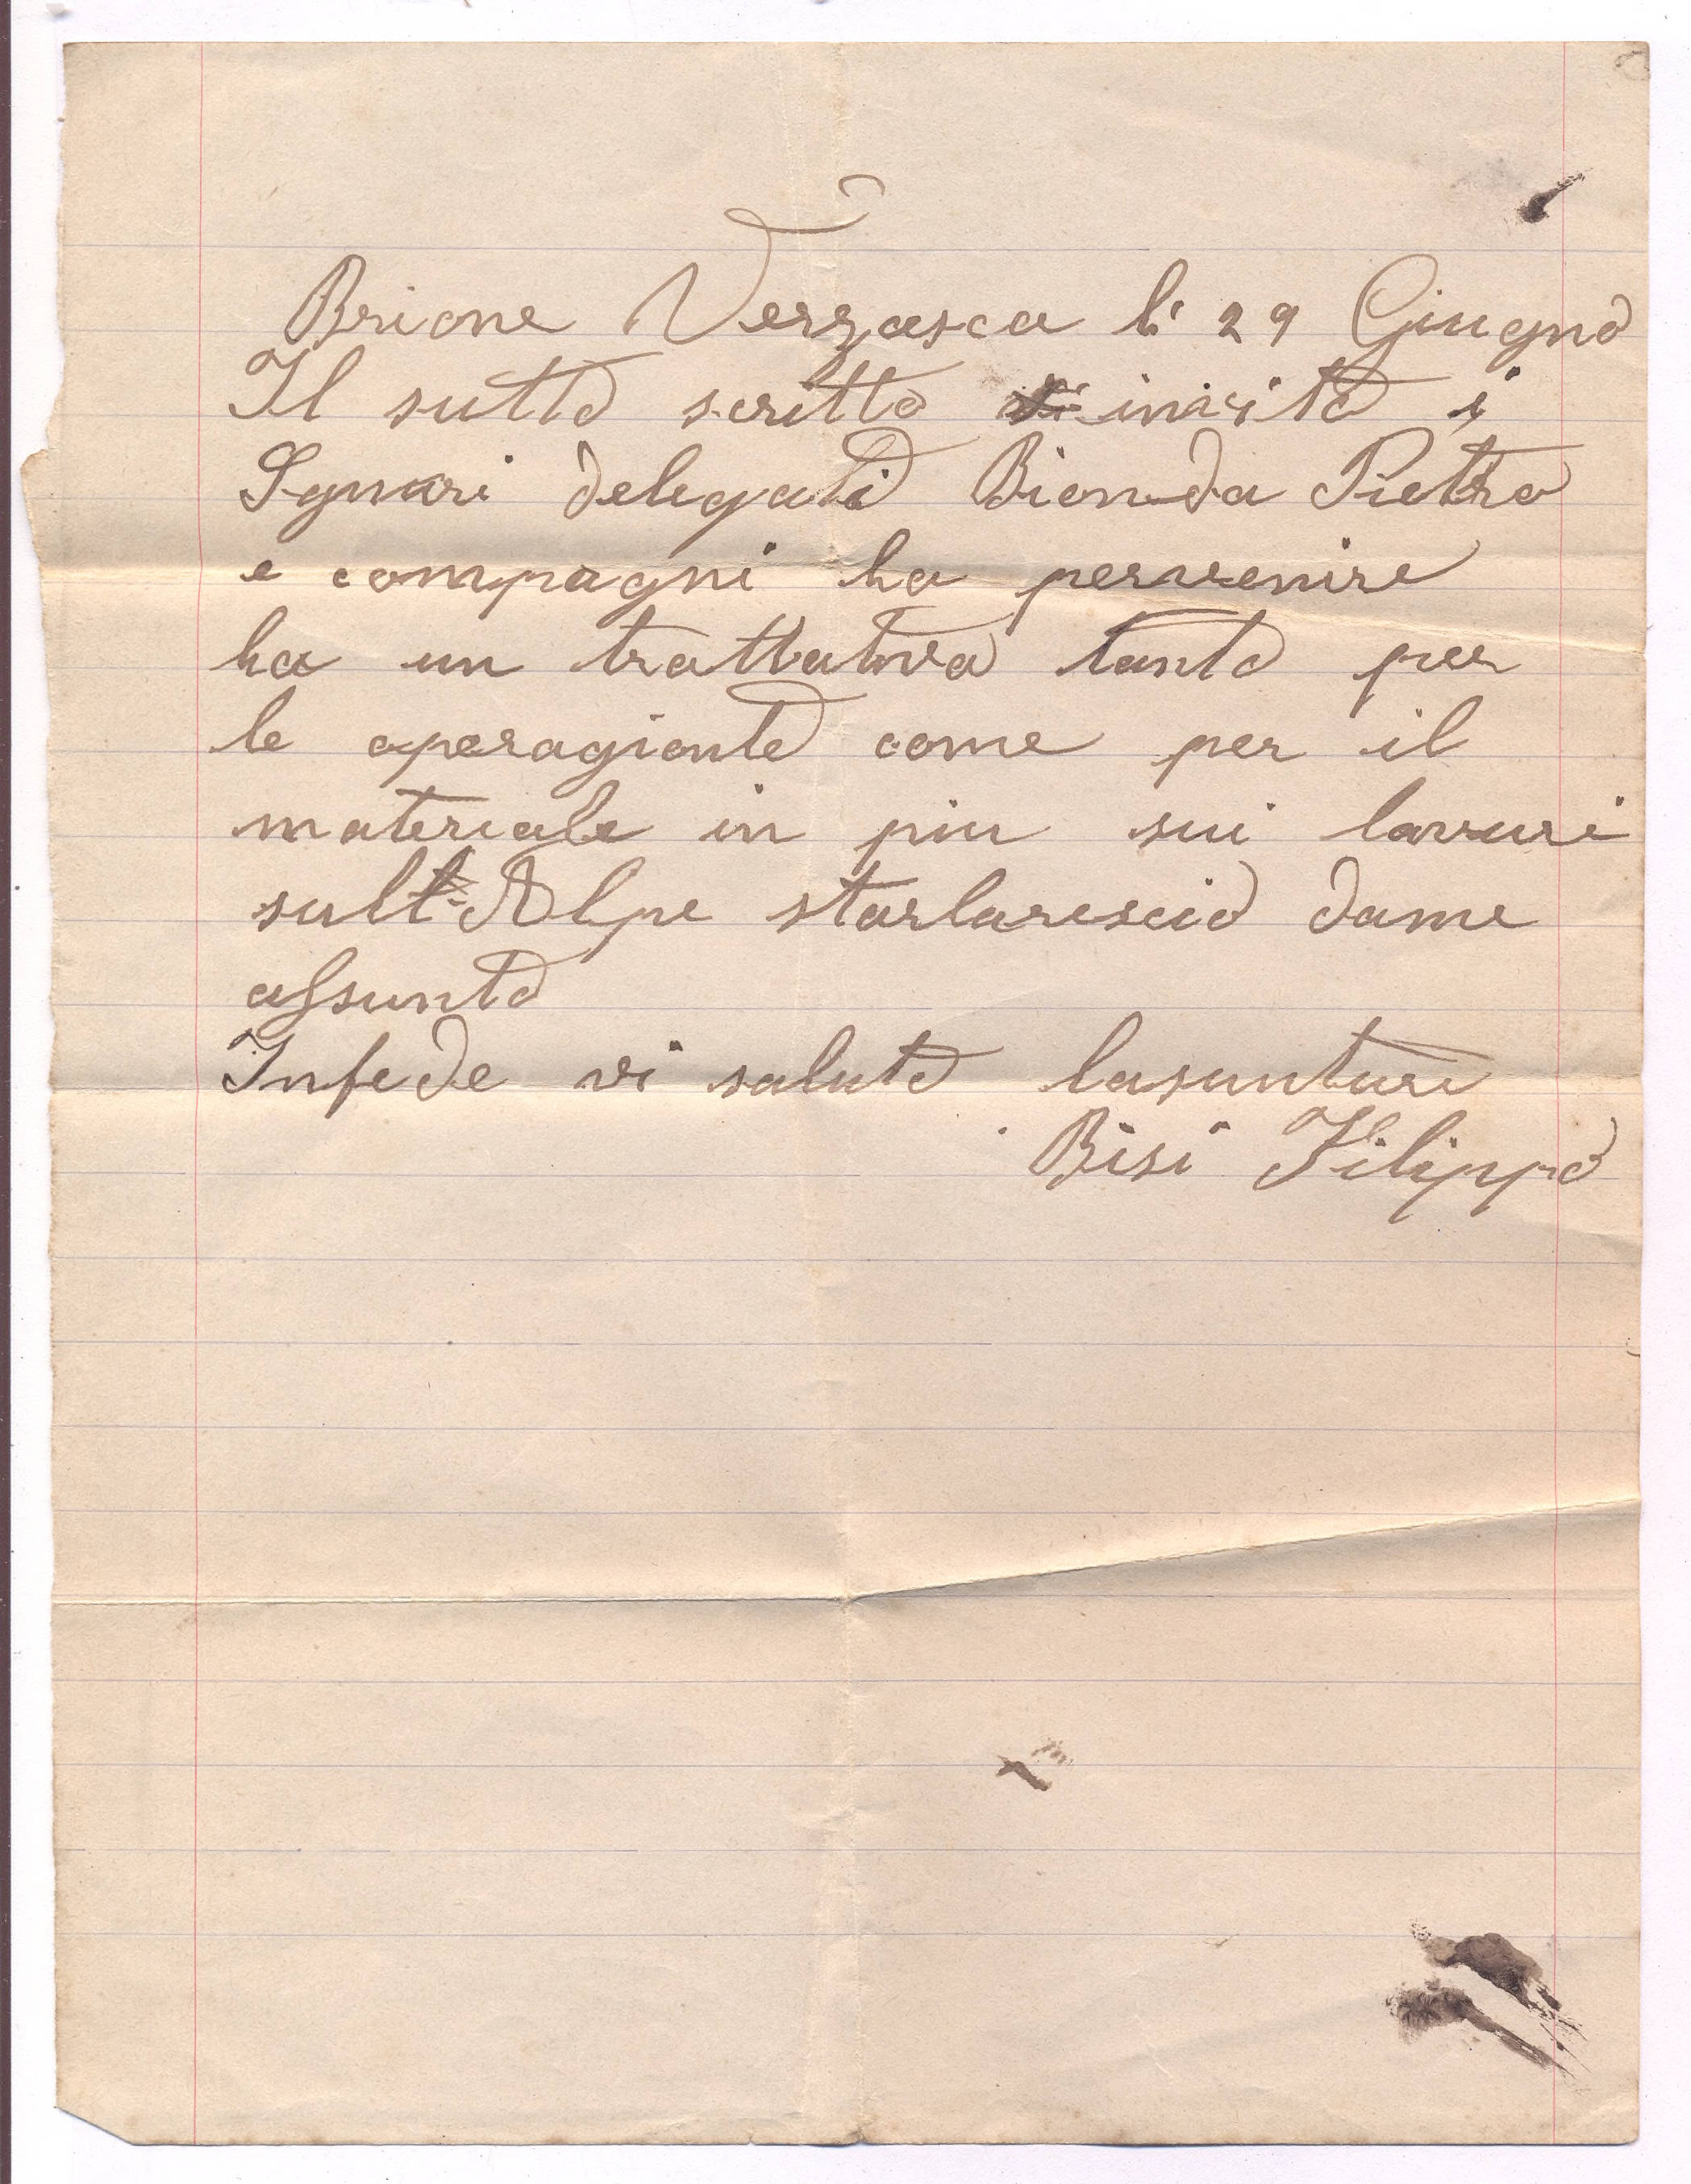 Brione Verzasca li 29 Giugno
Il sutto scritto invito i
Signuri delegati Bionda Pietro
e compagni ha pervenire
ha un trattativa tanto per
le operagionte come per il
materiale in piu sui lavuri
sull Alpe starlarescio dame
assunto
Infede vi saluto lasunture
Bisi Filippo